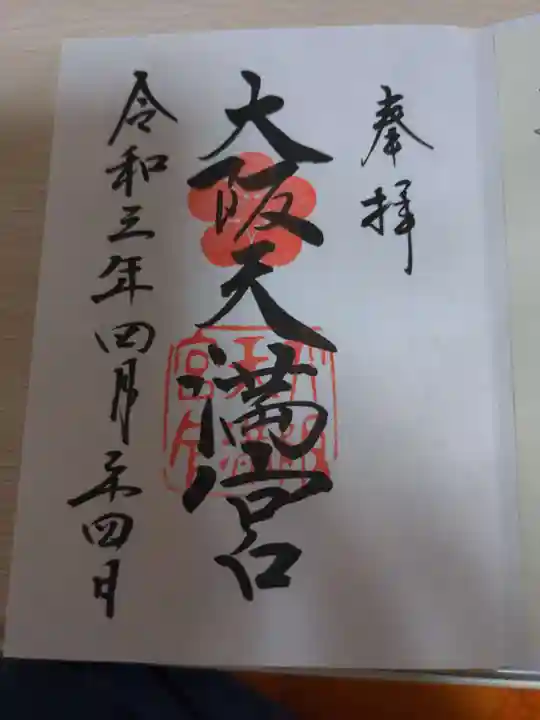 奉拝
大阪天満宮
令和三年四月二十四日